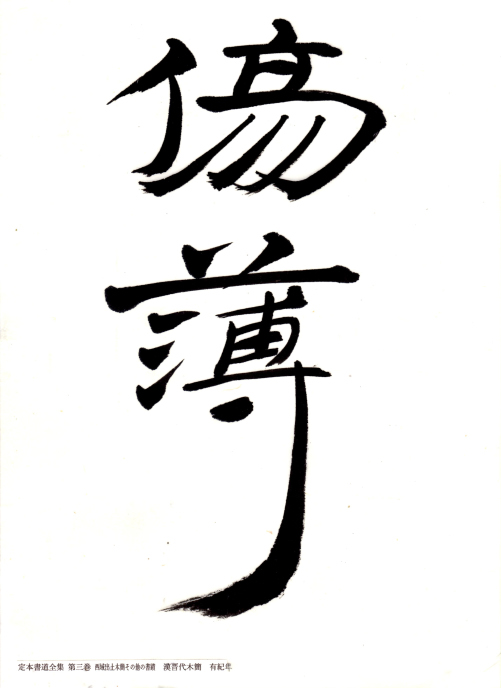 傷薄
定本書道全集 第三巻 西域出土木簡その他の書蹟 漢晋代木簡 有紀年